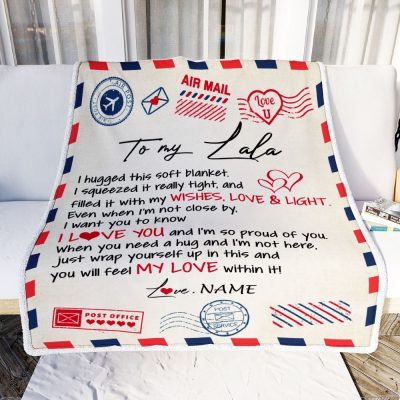 AIR MAIL
Love
U
To my Lala
I hugged this soft blanket.
I squeezed it really tight, and
filled it with my WISHES, LOVE & LIGHT.
Even when I'm not close by,
I want you to know
I LOVE YOU and I'm so proud of you.
When you need a hug and I'm not here,
just wrap yourself up in this and
you will feel MY LOVE within it!
Love, NAME
POST OFFICE
POST
SERVICE